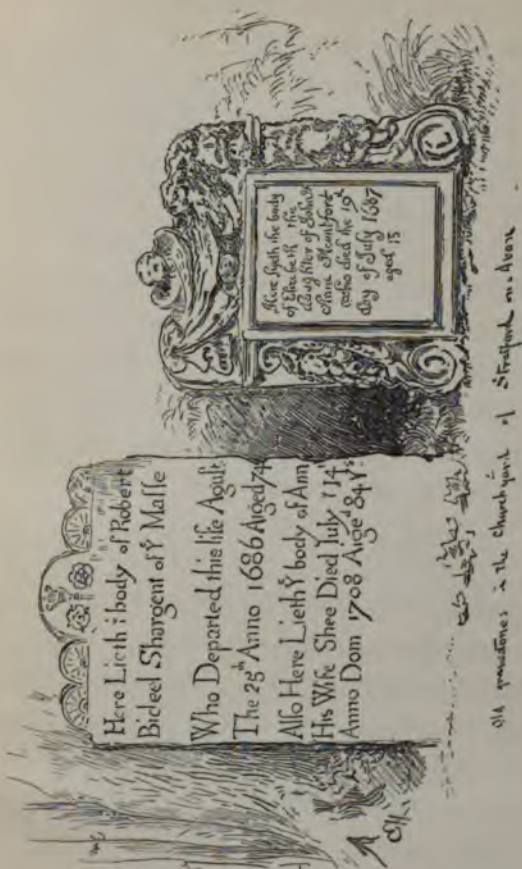 Here Lieth ẙ body of Robert
Bideel Shargent of Ẏ Masse
Who Departed this life Agust
The 25th Anno 1686 Aiged 74
Allso Here Lieth ẙ body of Ann
His Wife Shee Died July ẙ 14
Anno Dom 1708 Aiged 84 Ys
Here lyeth the body
of Elizabeth the
daughter of John &
Anne Mountford
who died the 19d
day of July 1687
aged 15
Old gravestones in the Churchyard of Stratford on Avon